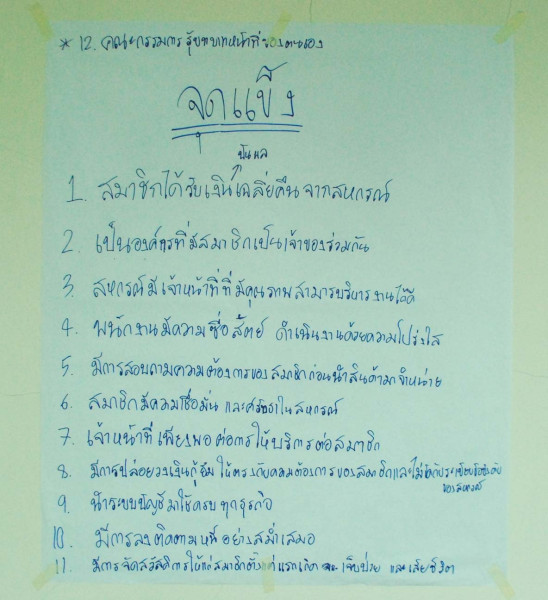 * 12. คณะกรรมการรู้บทบาทหน้าที่ของตนเอง
จุดแข็ง
ปันผล
1. สมาชิกได้รับเงินเฉลี่ยคืนจากสหกรณ์
2. เป็นองค์กรที่มีสมาชิกเป็นเจ้าของร่วมกัน
3. สหกรณ์มีเจ้าหน้าที่ที่มีคุณภาพสามารถบริหารงานได้ดี
4. พนักงานมีความซื่อสัตย์ ดำเนินงานด้วยความโปร่งใส
5. มีการสอบถามความต้องการของสมาชิกก่อนนำสินค้ามาจำหน่าย
6. สมาชิกมีความเชื่อมั่น และศรัทธาในสหกรณ์
7. เจ้าหน้าที่เพียงพอต่อการให้บริการต่อสมาชิก
8. มีการปล่อยวงเงินกู้ยืมให้ตรงกับความต้องการของสมาชิกและไม่ขัดกับระเบียบข้อบังคับ
ของสหกรณ์
9. นำระบบบัญชีมาใช้ครบทุกธุรกิจ
10. มีการลงติดตามหนี้อย่างสม่ำเสมอ
11. มีการจัดสวัสดิการให้แก่สมาชิกตั้งแต่แรกเกิด เจ็บป่วย และเสียชีวิต